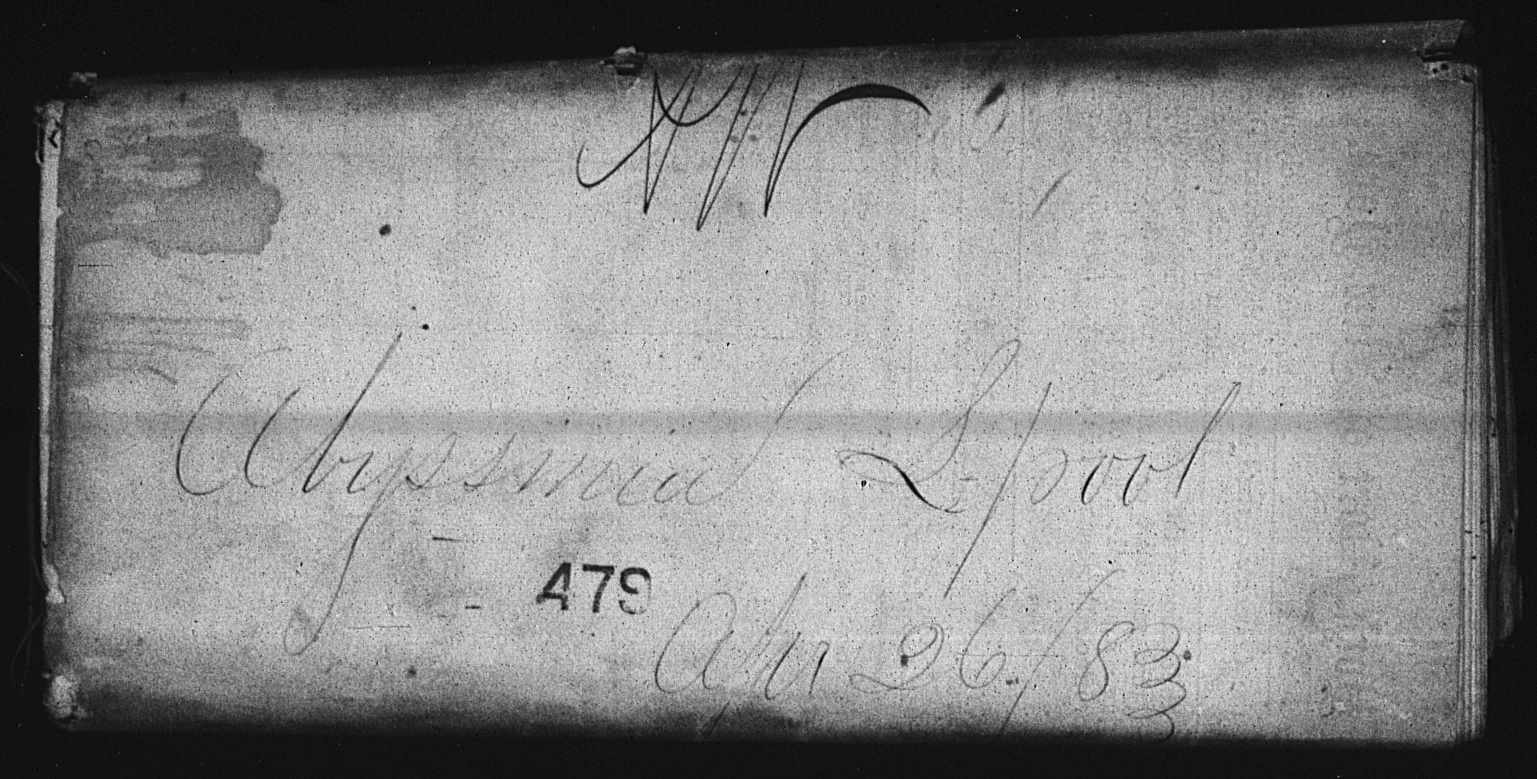 Abyssinia L-pool
479
Apr 26/83